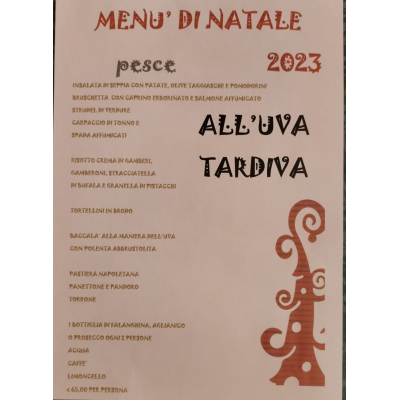 MENU' DI NATALE
pesce 2023
INSALATA DI SEPPIA CON PATATE, OLIVE TAGGIASCHE E POMODORINI
BRUSCHETTA CON CAPRINO ERBORINATO E SALMONE AFFUMICATO
STRUDEL DI VERDURE
CARPACCIO DI TONNO E
SPADA AFFUMICATI
ALL'UVA
TARDIVA
RISOTTO CREMA DI GAMBERI,
GAMBERONI, STRACCIATELLA
DI BUFALA E GRANELLA DI PISTACCHI
TORTELLINI IN BRODO
BACCALA' ALLA MANIERA DELL'UVA
CON POLENTA ABBRUSTOLITA
PASTIERA NAPOLETANA
PANETTONE E PANDORO
TORRONE
1 BOTTIGLIA DI FALANGHINA, AGLIANICO
O PROSECCO OGNI 2 PERSONE
ACQUA
CAFFE'
LIMONCELLO
€ 65,00 PER PERSONA